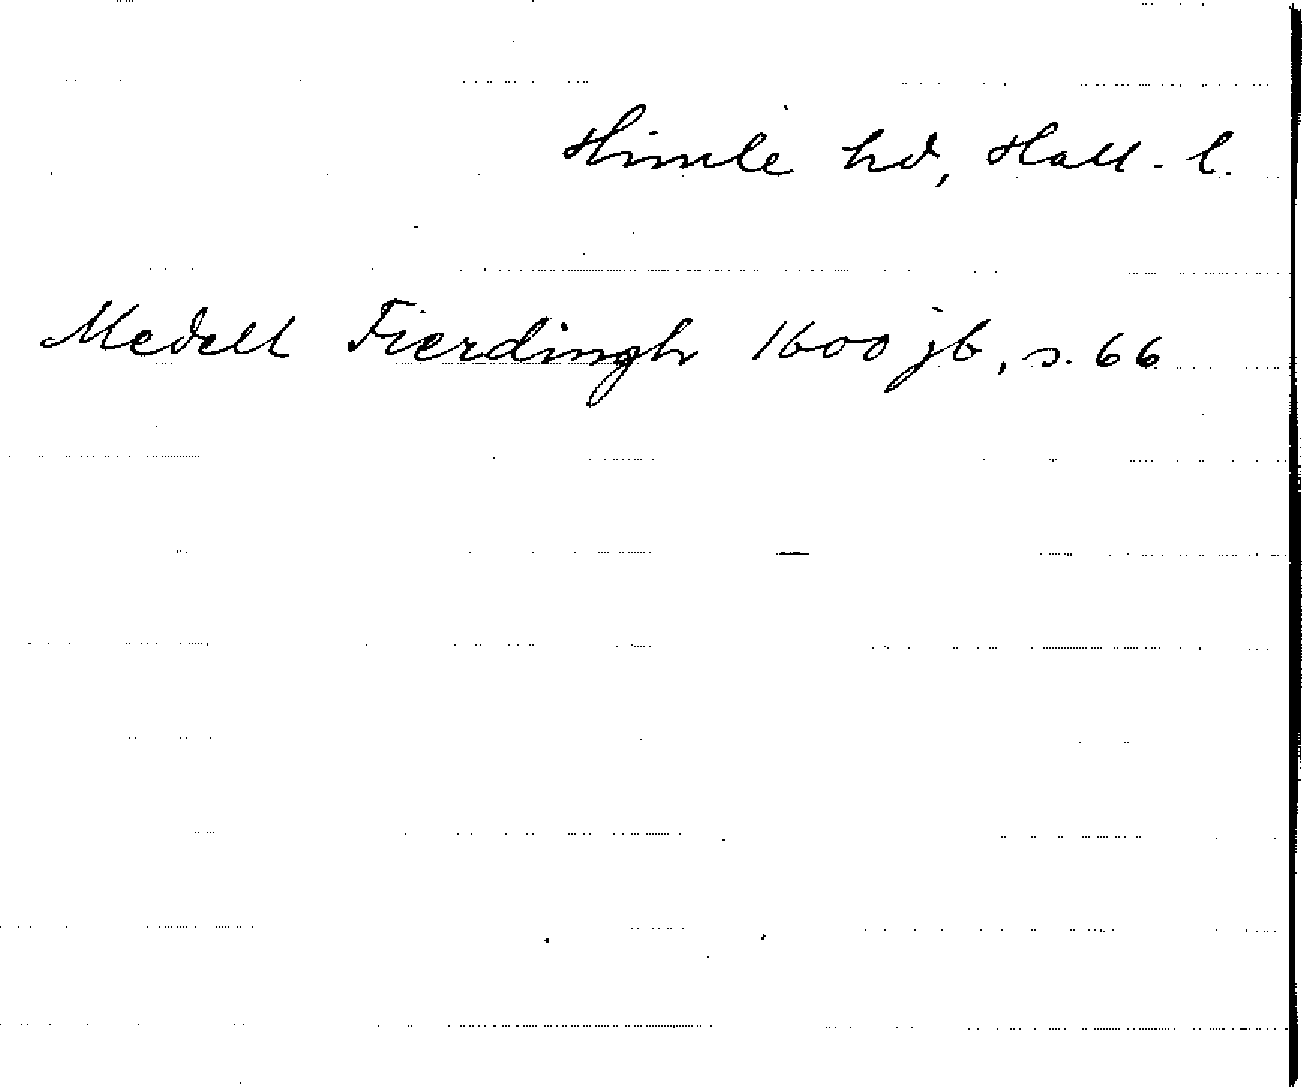 Himle hd, Hall. l.
Medell Fierdingh 1600 jb, s. 66